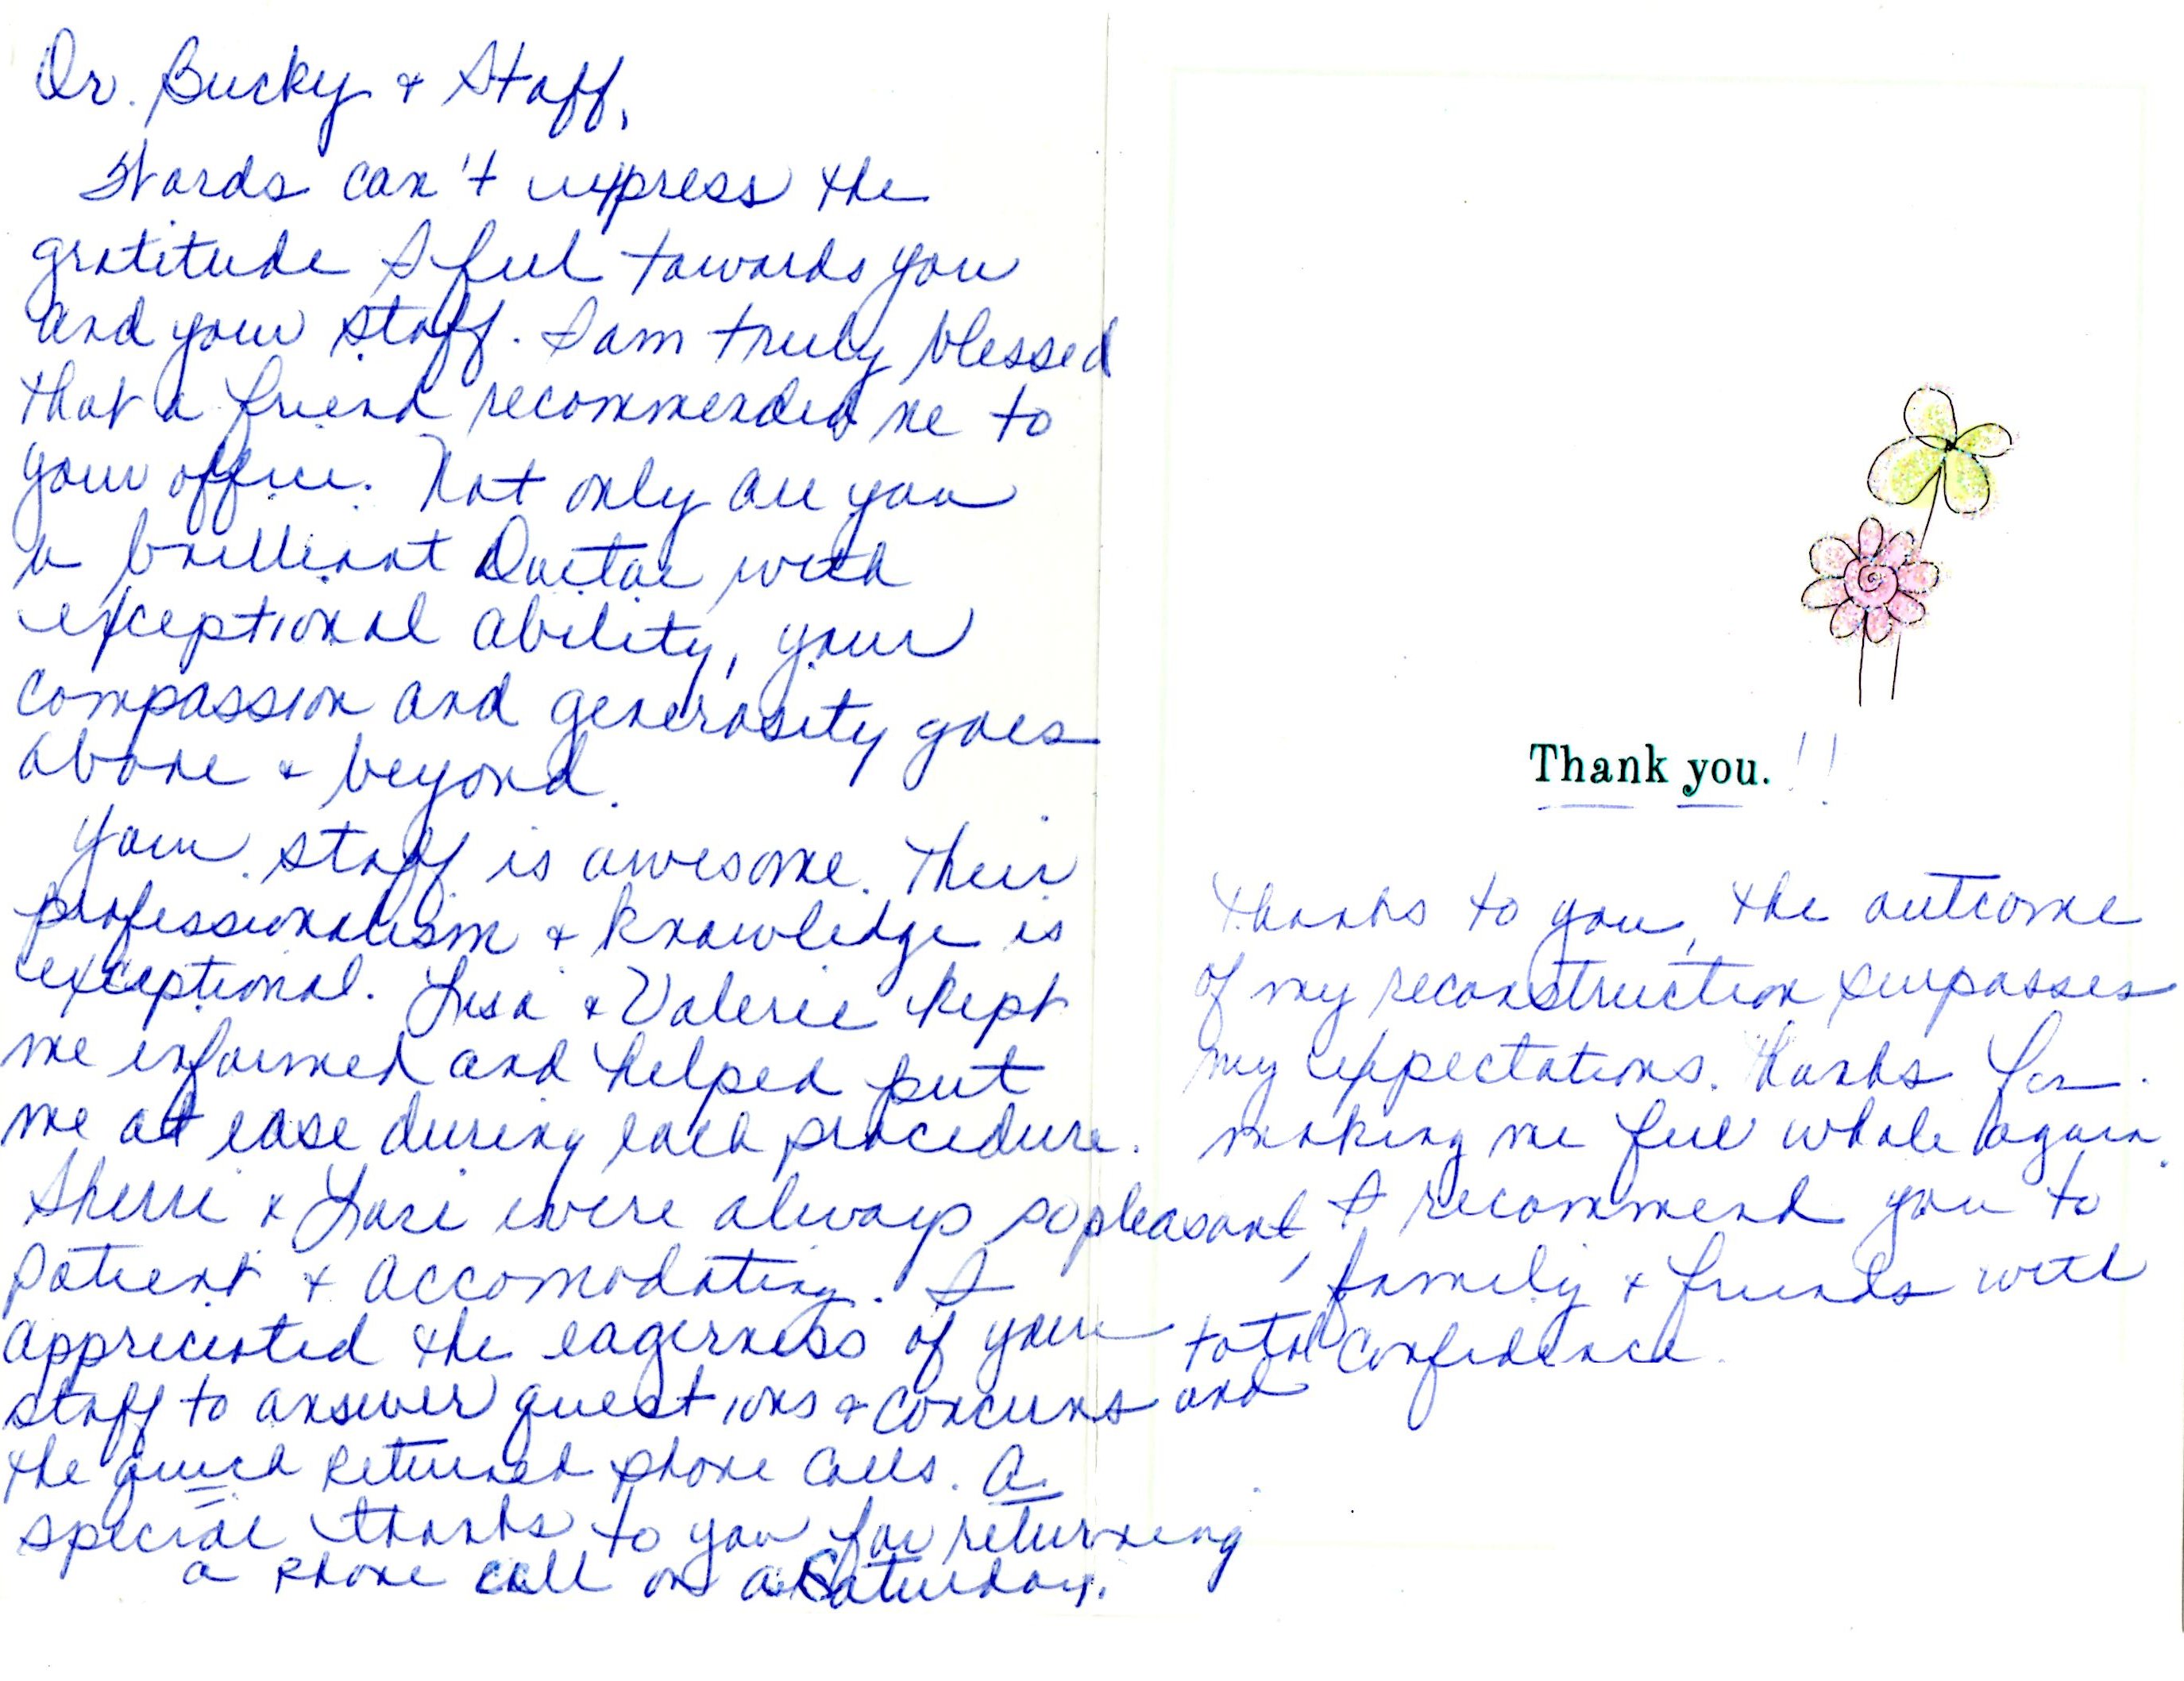 Dr. Bucky & Staff,
Words can't express the
gratitude I feel towards you
and your staff. I am truly blessed
that a friend recommended me to
your office. Not only are you
a brilliant Doctor with
exceptional ability, your
compassion and generosity goes
above & beyond.
Your staff is awesome. Their
professionalism & knowledge is
exceptional. Lisa & Valerie kept
me informed and helped put
me at ease during each procedure.
Sherri & Lori were always so pleasant,
patient & accomodating. I
appreciated the eagerness of your
staff to answer questions & concerns and
the quick returned phone calls. A
special thanks to you for returning
a phone call on a Saturday.
Thank you.!!
Thanks to you, the outcome
of my reconstruction surpasses
my expectations. Thanks for
making me feel whole again.
I recommend you to
family & friends with
total confidence.